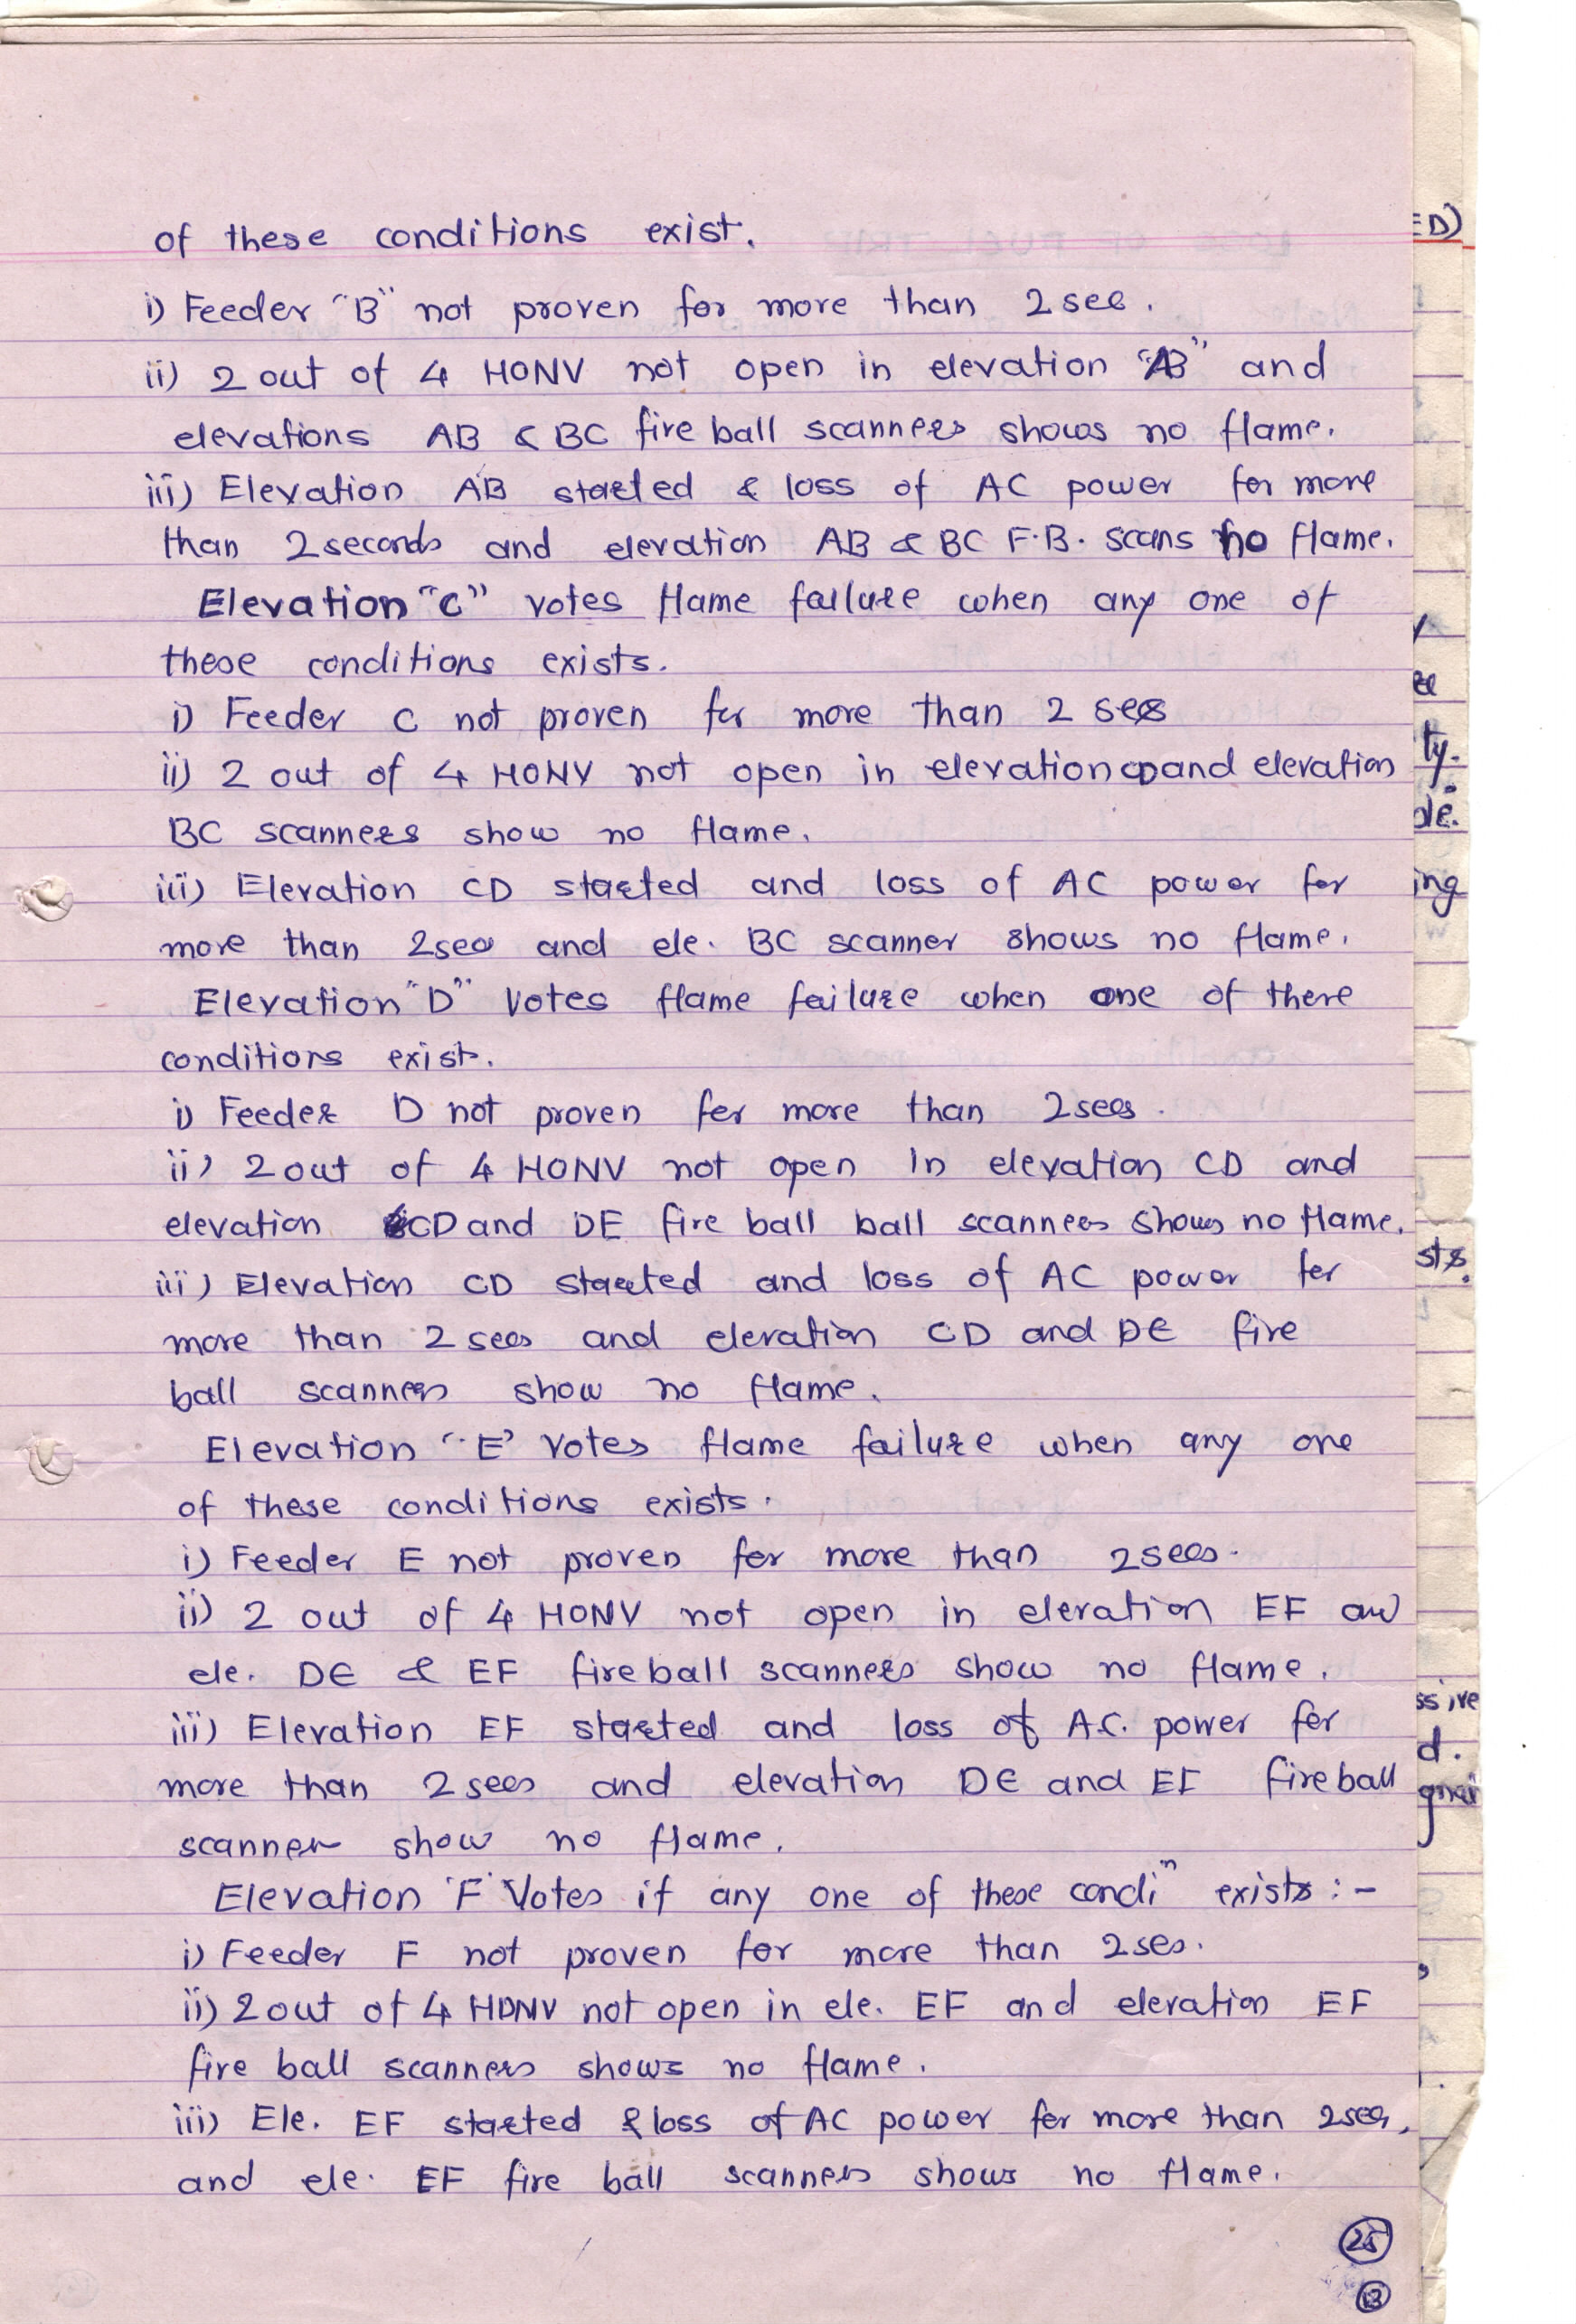 of these conditions exist.
i) Feeder "B" not proven for more than 2 sec.
ii) 2 out of 4 HONV not open in elevation "AB" and
elevations AB & BC fire ball scanners shows no flame.
iii) Elevation AB started & loss of AC power for more
than 2 seconds and elevation AB & BC F.B. scans no flame.
Elevation "C" votes flame failure when any one of
these conditions exists.
i) Feeder C not proven for more than 2 secs
ii) 2 out of 4 HONV not open in elevation CD and elevation
BC scanners show no flame.
iii) Elevation CD started and loss of AC power for
more than 2 secs and ele. BC scanner shows no flame.
Elevation "D" votes flame failure when one of there
conditions exist.
i) Feeder D not proven for more than 2 secs.
ii) 2 out of 4 HONV not open in elevation CD and
elevation CD and DE fire ball ball scanners shows no flame.
iii) Elevation CD started and loss of AC power for
more than 2 secs and elevation CD and DE fire
ball scanners show no flame.
Elevation "E' votes flame failure when any one
of these conditions exists.
i) Feeder E not proven for more than 2 secs.
ii) 2 out of 4 HONV not open in elevation EF and
ele. DE & EF fire ball scanners show no flame.
iii) Elevation EF started and loss of A.C. power for
more than 2 secs and elevation DE and EF fire ball
scanner show no flame.
Elevation 'F' Votes if any one of these condi^n exists :-
i) Feeder F not proven for more than 2 ses.
ii) 2 out of 4 HONV not open in ele. EF and elevation EF
fire ball scanners shows no flame.
iii) Ele. EF started & loss of AC power for more than 2 secs,
and ele. EF fire ball scanners shows no flame.
25
13